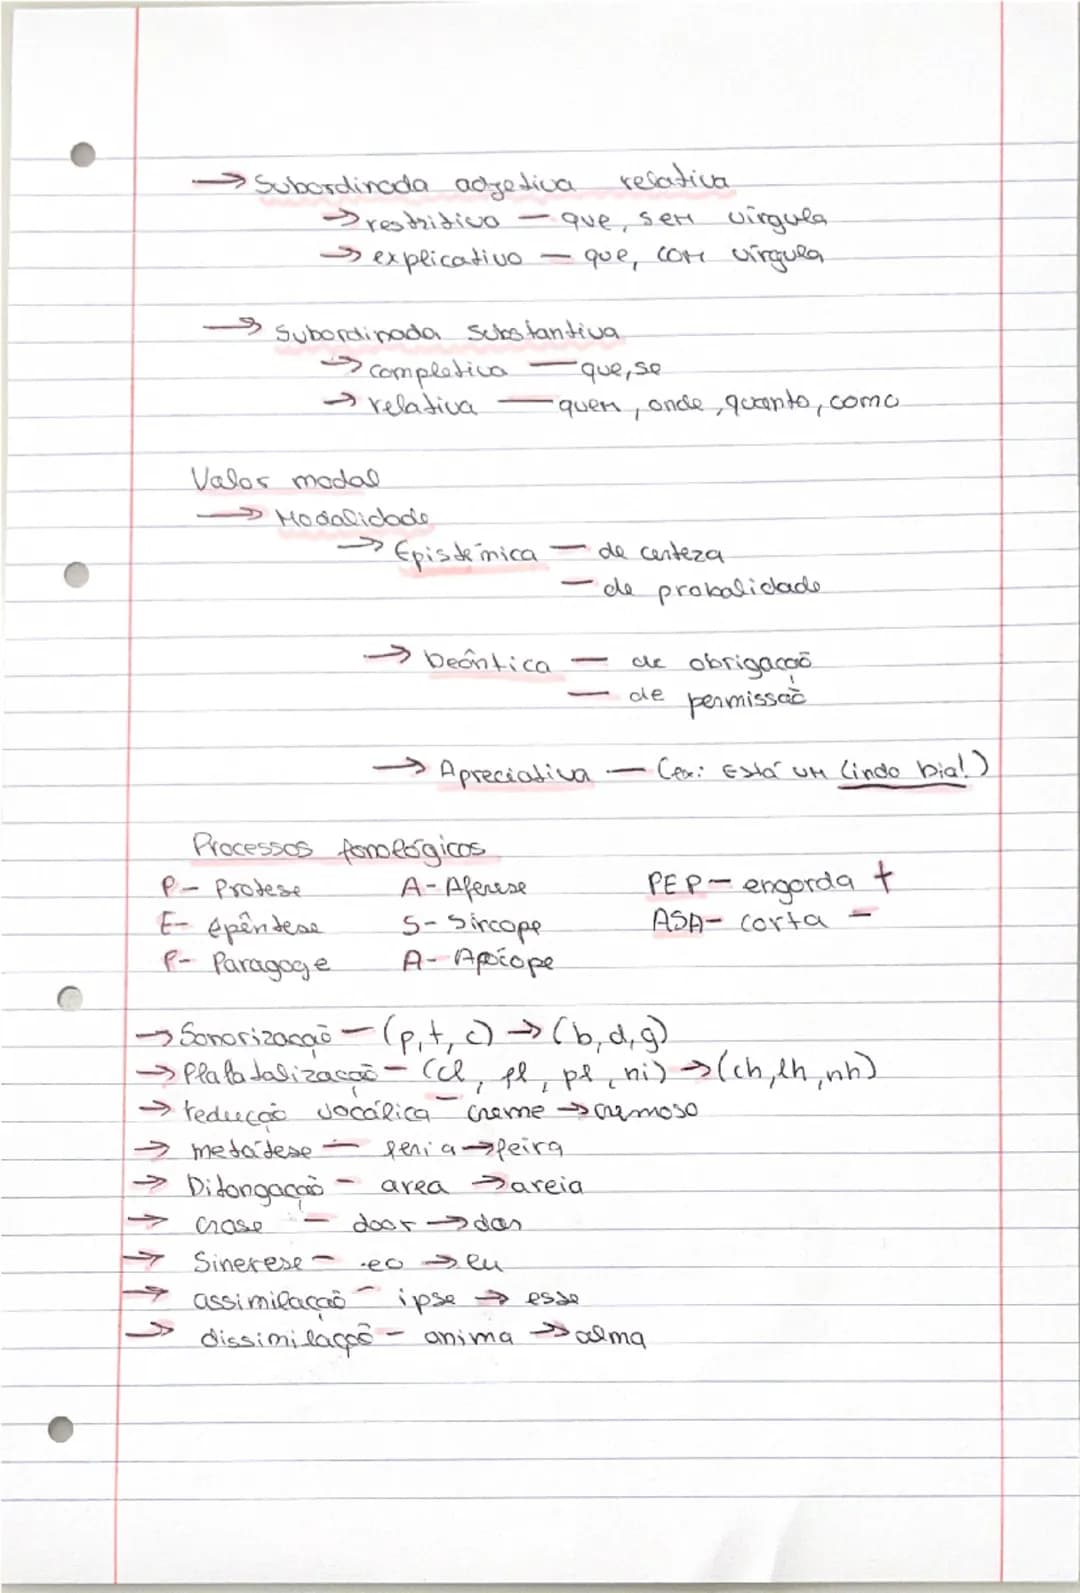 → Subordinada adjetiva relativa
→ restritivo — que, sem vírgula
→ explicativo — que, com vírgula
→ Subordinada Substantiva
→ completiva — que, se
→ relativa — quem, onde, quanto, como
Valor modal
→ Modalidade
→ Epistémica — de certeza
— de probalidade
→ Deôntica — de obrigação
— de permissão
→ Apreciativa — (ex: Está um lindo Dia!)
Processos fonológicos
P- Protese A- Aferese PEP- engorda +
E- epêntese S- Sircope ASA- corta -
P- Paragoge A- Apócope
→ Sonorização — (p, t, c) → (b, d, g)
→ Plalatalização — (cl, fl, pl, ni) → (ch, lh, nh)
→ redução vocálica — creme → cremoso
→ metátese — feria → feira
→ Ditongação — area → areia
→ crase — door → dor
→ Sinerese — eo → eu
→ assimilação — ipse → esse
→ dissimilação — anima → alma